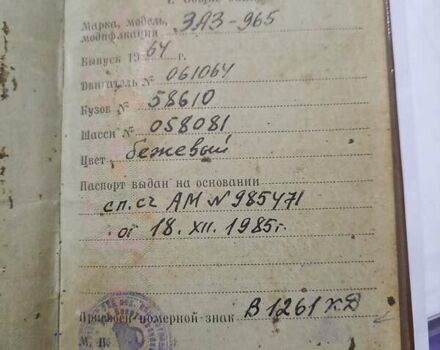 1. Общие
Марка, модель, ЗАЗ-965
модификация
Выпуск 19 64 г.
Двигатель № 061064
Кузов № 58610
Шасси № 058081
Цвет бежевый
Паспорт выдан на основании
сп.сч АМ N 985471
от 18. XII. 1985г.
Присвоен номерной знак В 1261 КД
М. П.